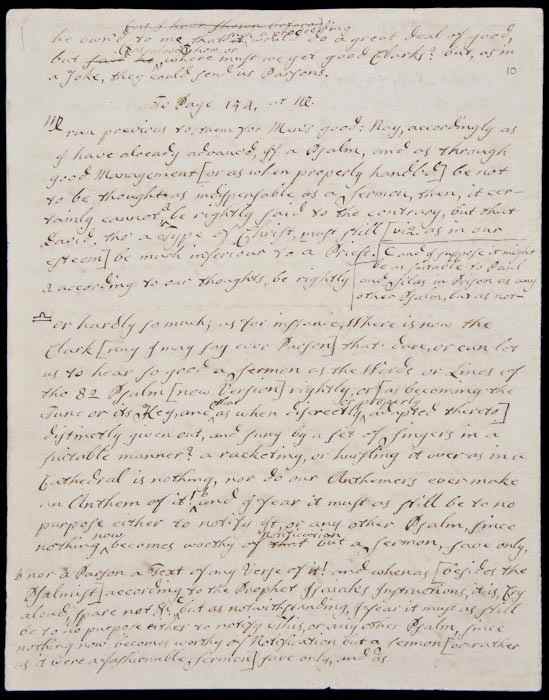 but I have shewn before
he own'd to me that it would do a great deal of good,
but where must we get good Clarks? but, as in
a Joke, they could send us Parsons.
10
To Page 154, at
ran previous to, them for Man's good: Nay, accordingly as
I have already advanced, if a Psalm, and as through
good Management [or as when properly handled] be not
to be thought as indispensable as a Sermon, then, it cer-
tainly cannot be rightly said to the contrary, but that
David, tho' a Type of Christ, must still [viz. as in our
esteem] be much inferiour to a Priest.
according to our thoughts, be rightly
[and I suppose it might
be as suitable to Paul
and Silas in Prison as any
other Person, but as not
or hardly so much; as for instance, Where is now the
Clark [nay I may say ever Parson] that dare, or can let
us to hear so good a Sermon as the Words or Lines of
the 82 Psalm [new Version] rightly, or [as becoming the
Tune or its Key, and as when discreetly or properly adapted thereto]
distinctly given out, and sung by a set of singers in a
suitable manner? a racketing, or hurling it over as in a
Cathedral is nothing, nor do our Anthemers ever make
an Anthem of it! and I fear it must as still be to no
purpose either to notify it, or any other Psalm, since
nothing now becomes worthy of Notification but a Sermon, save only,
nor a Parson a Text of any Verse of it! and whereas [besides the
Psalmist] according to the Prophet Isaiah's Instructions, it is, Cry
aloud, spare not &c. but as notwithstanding, I fear it must as still
be to no purpose either to notify this, or any other Psalm, since
nothing now becomes worthy of Notification but a Sermon [or rather
as it were a fashionable Sermon] save only, and as